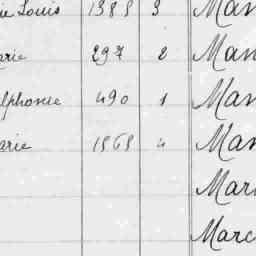 ie Louis 1388 3 Man
arie 297 2 Man
lphonse 490 1 Man
arie 1868 4 Man
Mar
Marc